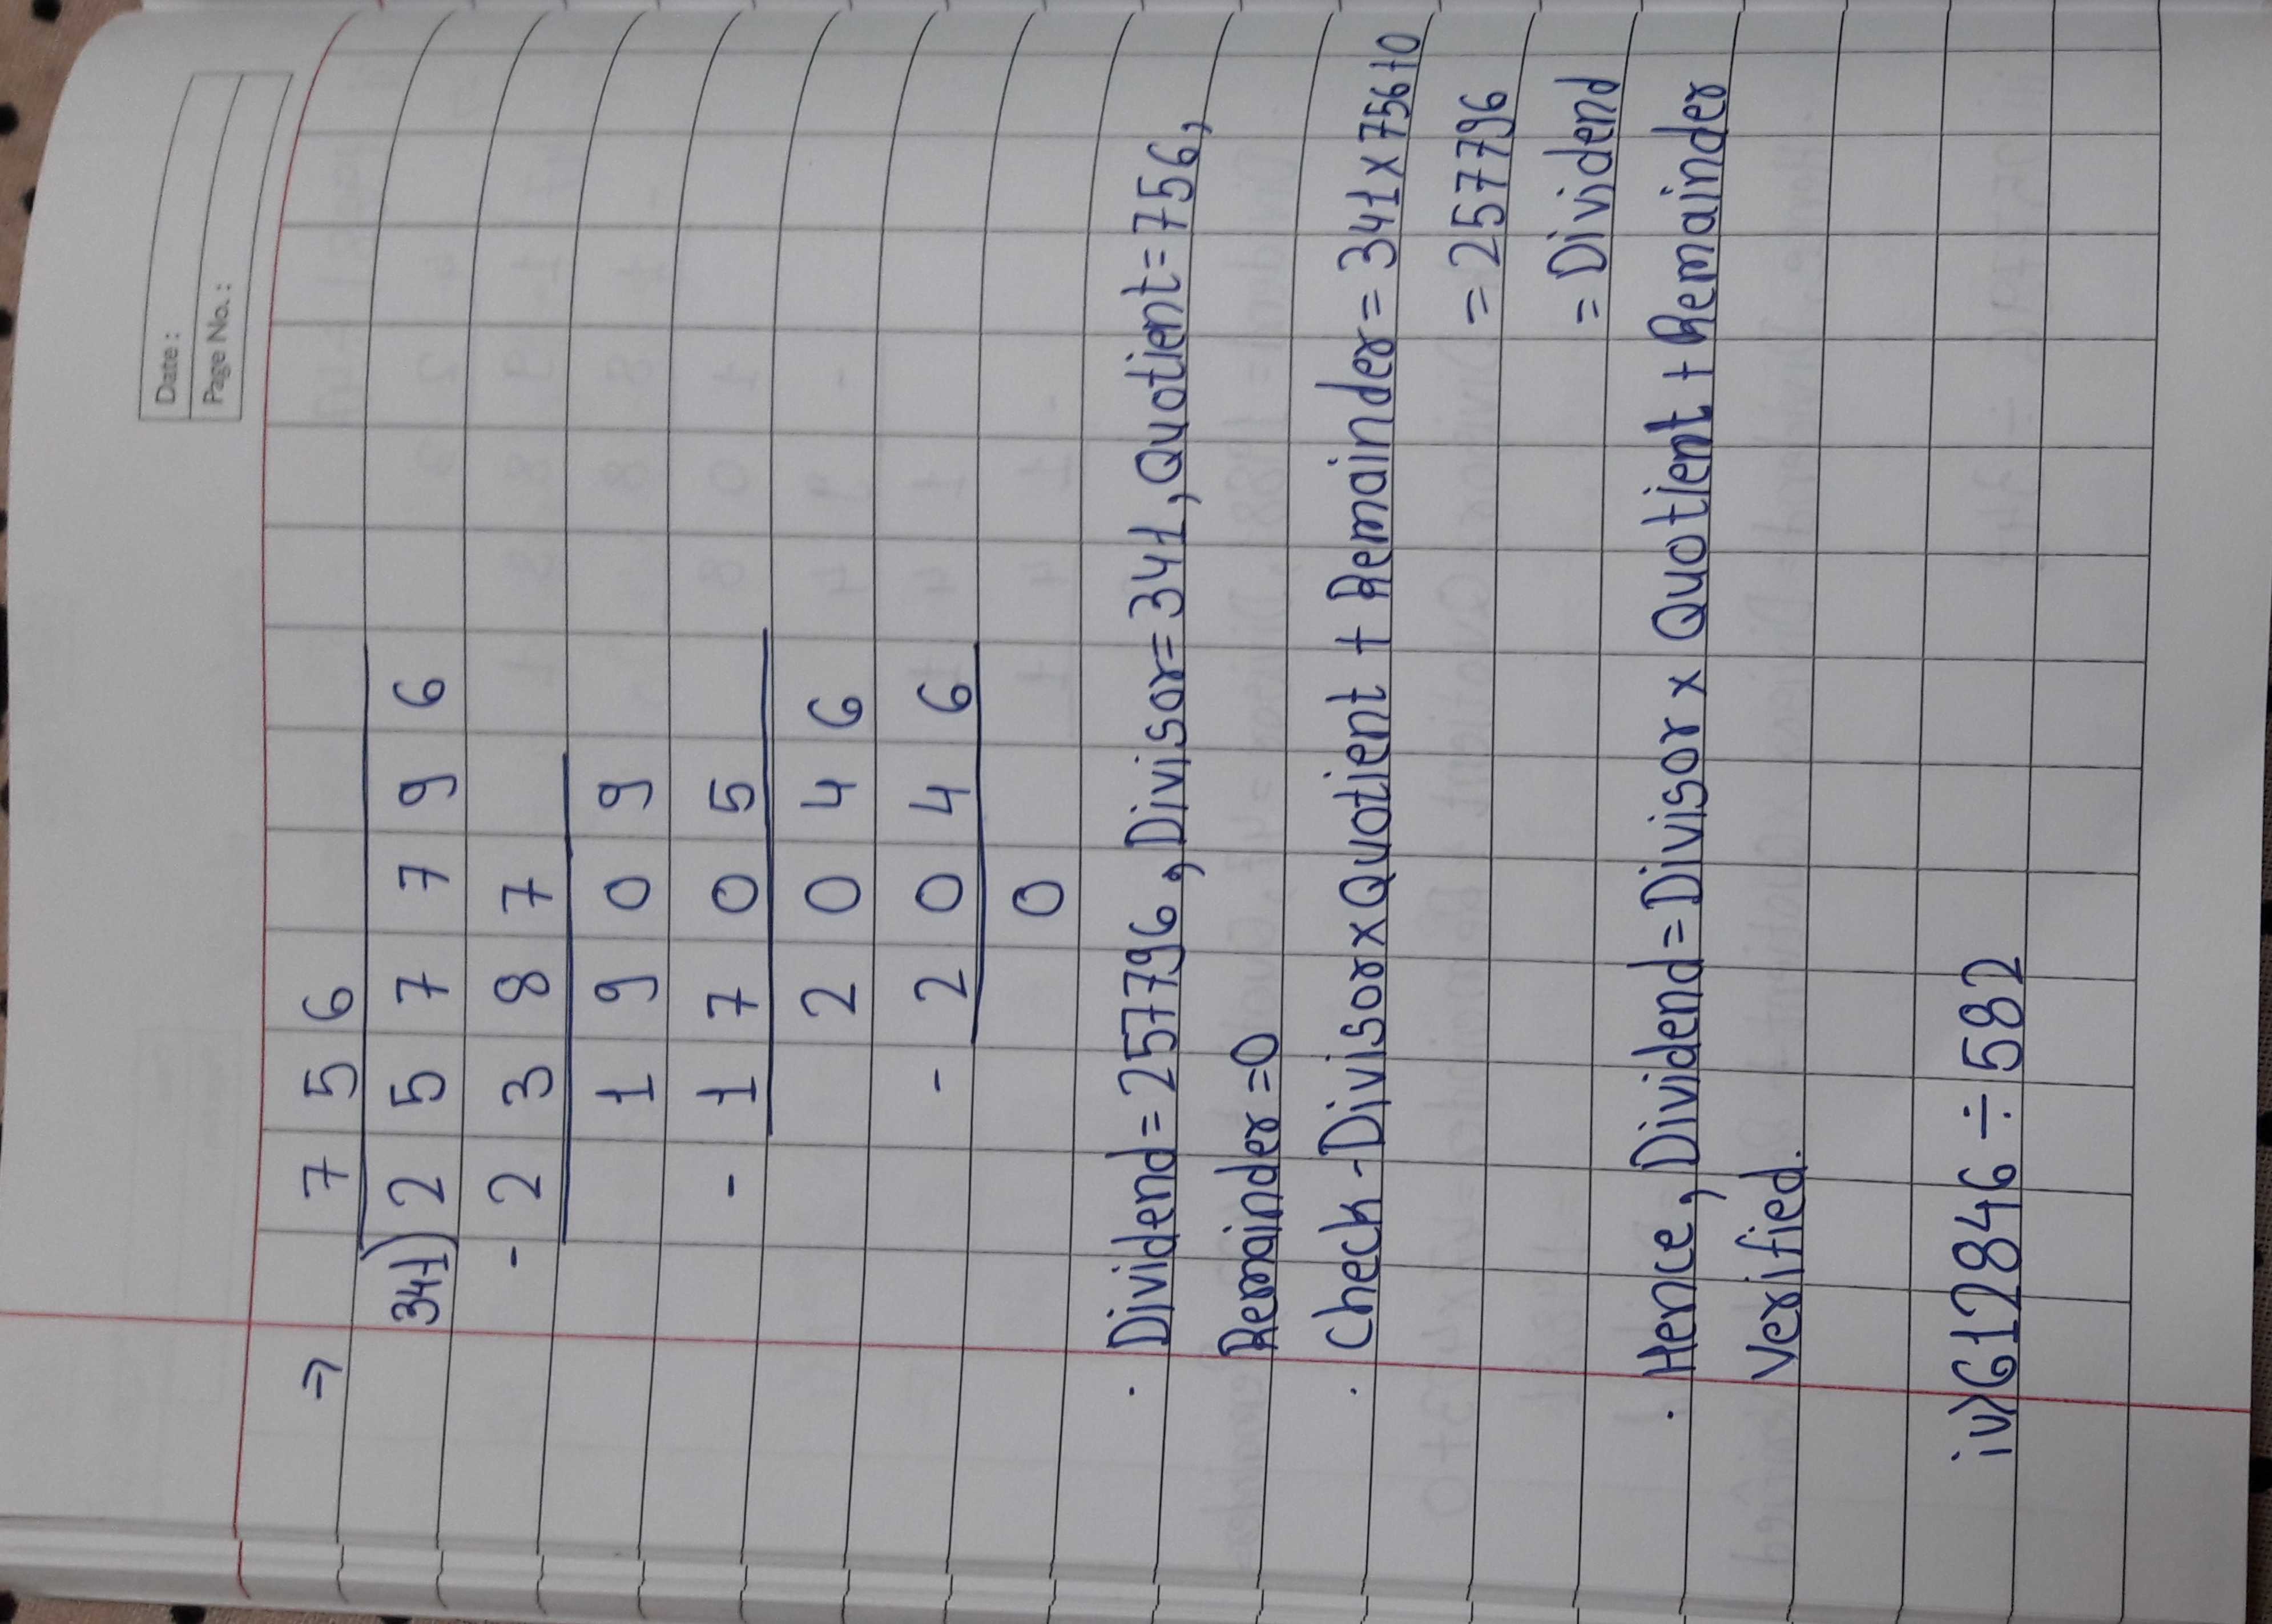 Date :
Page No. :
⇒ 7 5 6
341) 2 5 7 7 9 6
- 2 3 8 7
1 9 0 9
- 1 7 0 5
2 0 4 6
- 2 0 4 6
0
. Dividend = 257796, Divisor = 341, Quotient = 756,
Remainder = 0
. Check - Divisor x Quotient + Remainder = 341 x 756 + 0
= 257796
= Dividend
. Hence, Dividend = Divisor x Quotient + Remainder
Verified.
iv) 612846 ÷ 582